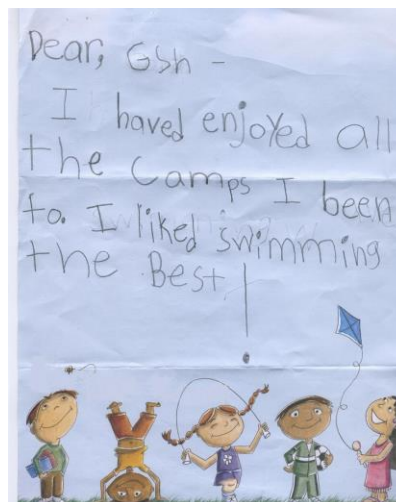 Dear, Gsh -
I haved enjoyed all
the Camps I been
to. I liked swimming
the Best!